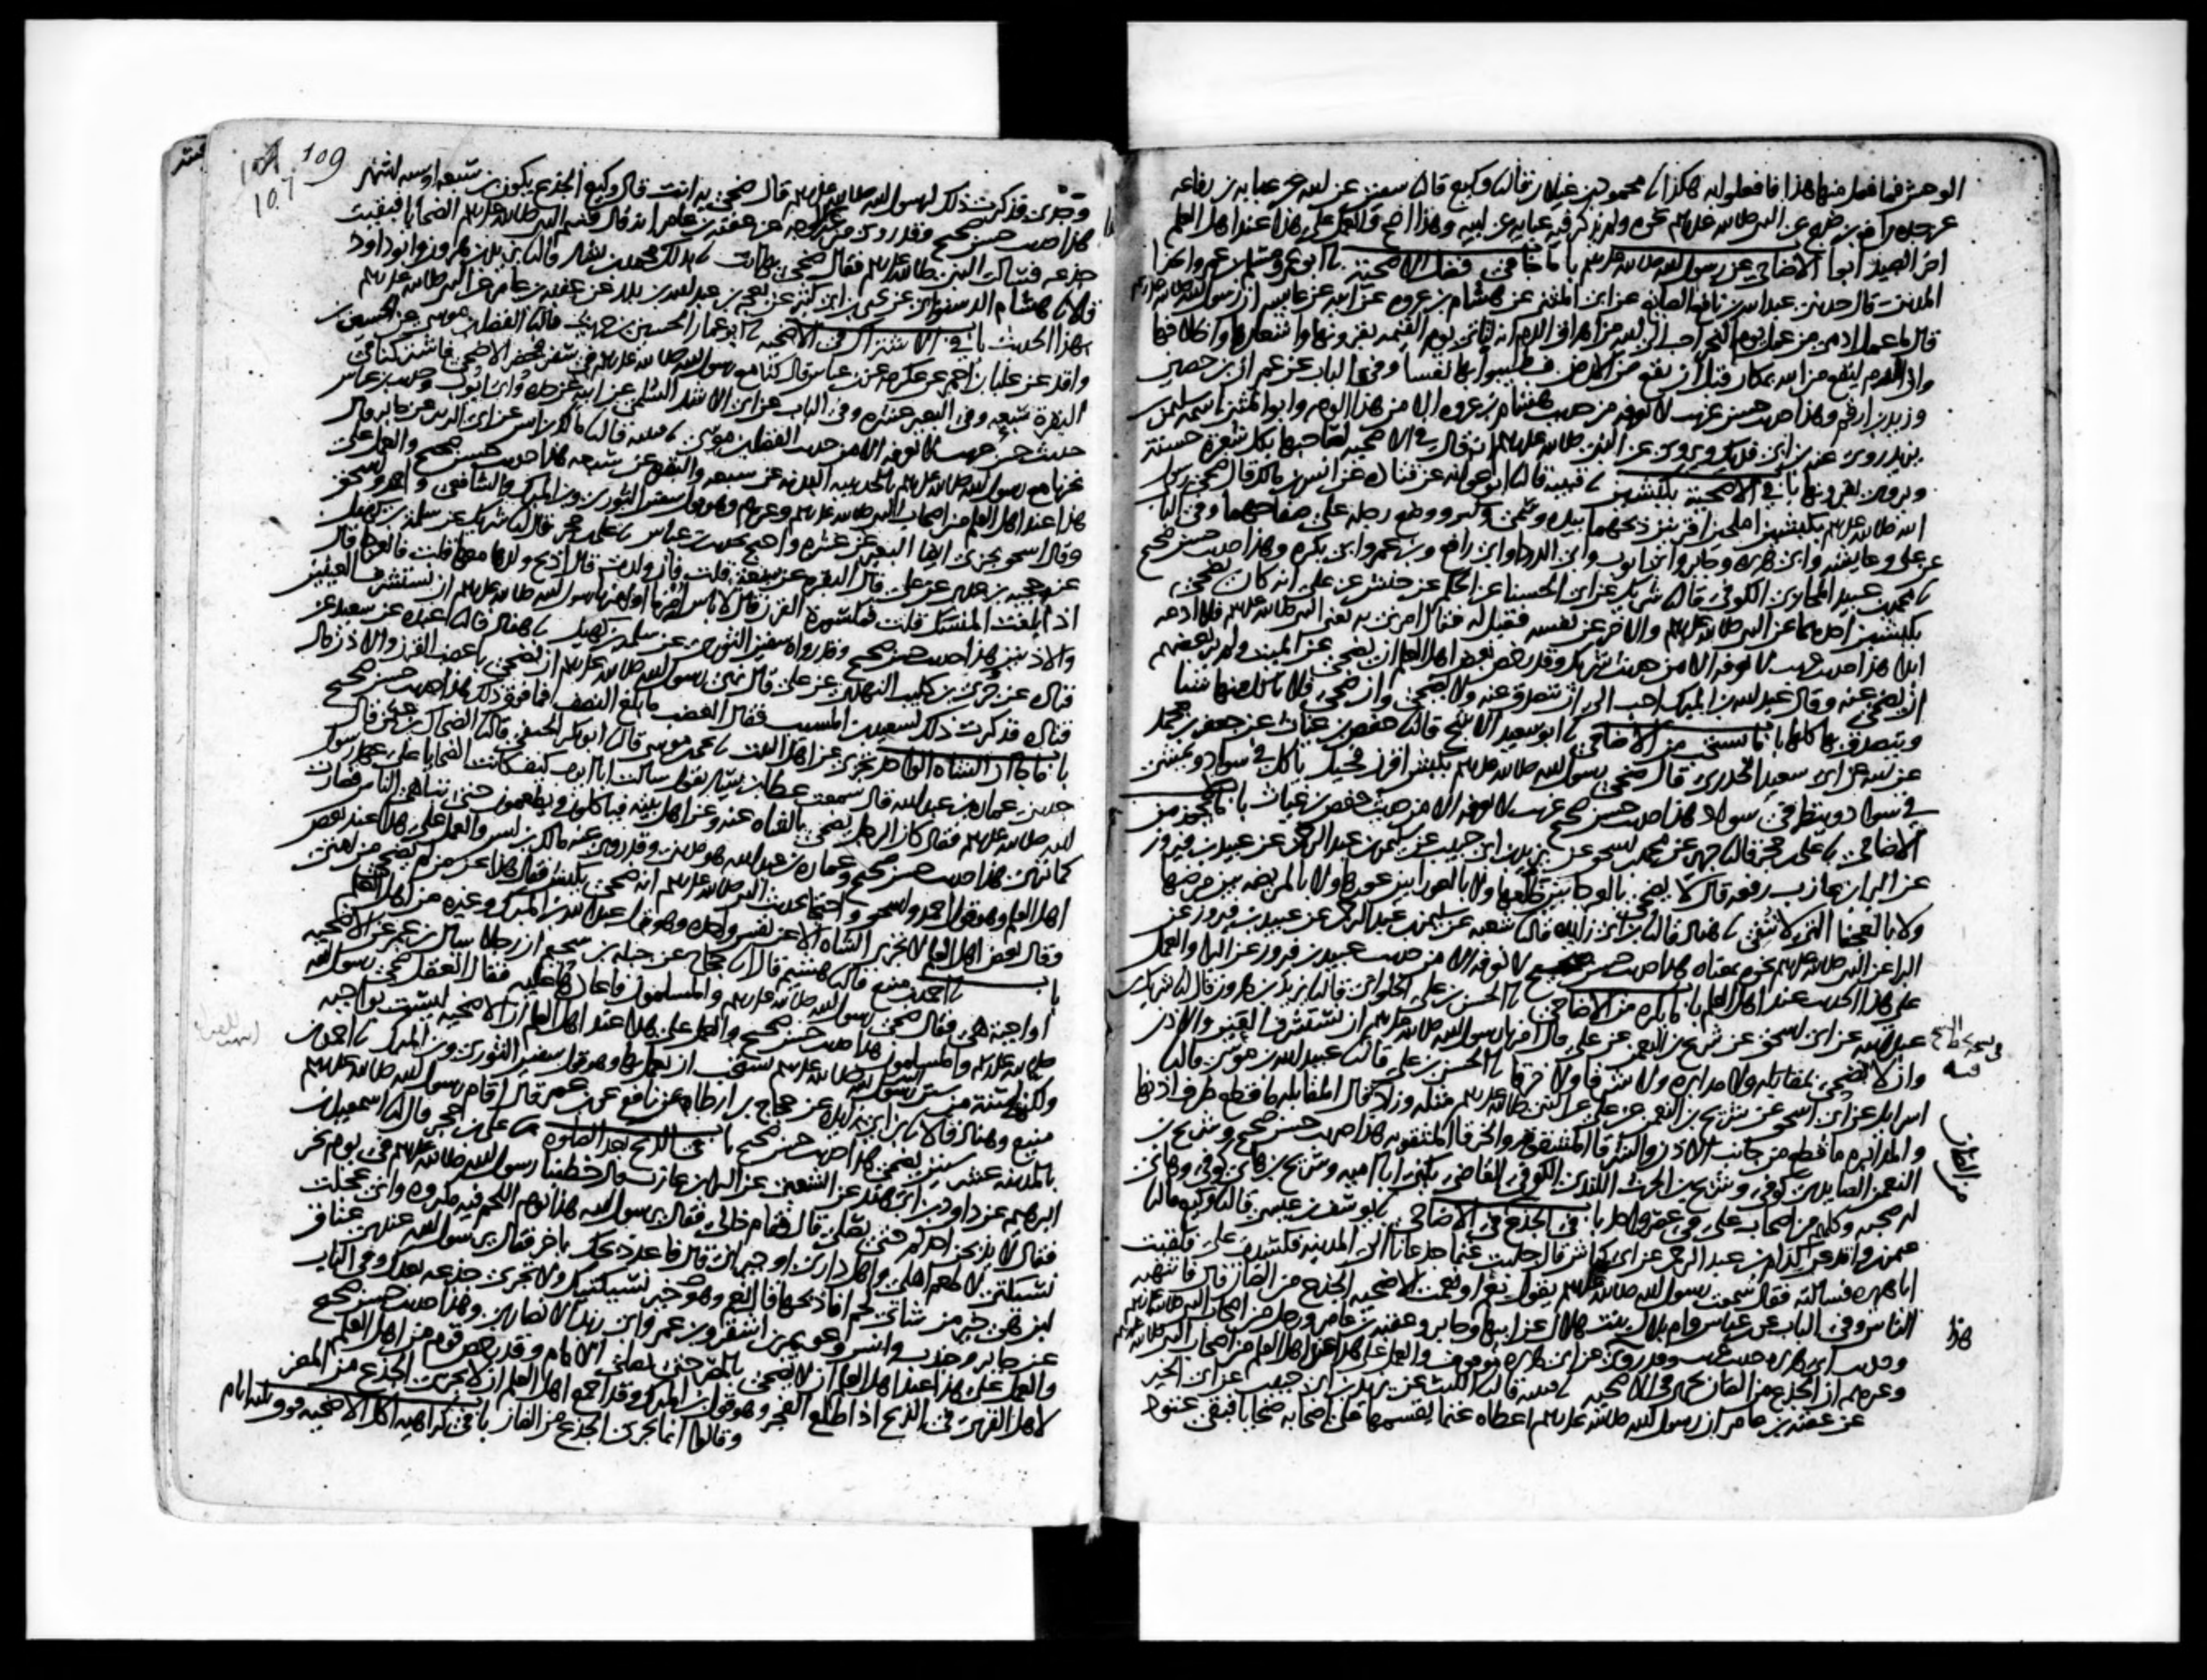 الوحش فما فعل منها هذا فافعلوا به هكذا نا محمود بن غيلان قال نا وكيع قال نا سفين عن ابيه عن عبايه بن رفاعه
عن جده رافع بن خديج عن النبي صلى الله عليه وسلم نحوه ولم يذكر فيه عبايه عن ابيه وهذا اصح والعمل على هذا عند اهل العلم
اخر الصيد ابواب الاضاحي عن رسول الله صلى الله عليه وسلم باب ما جا في فضل الاضحية نا ابو عمرو مسلم بن عمرو
المديني قال حدثني عبد الله بن نافع الصائغ عن ابي المثنى عن هشام بن عروه عن ابيه عن عايشه ان رسول الله صلى الله عليه وسلم
قال ما عمل ادمي من عمل يوم النحر احب الى الله من اهراق الدم انه لياتي يوم القيمه بقرونها واشعارها واظلافها
وان الدم ليقع من الله بمكان قبل ان يقع من الارض فطيبوا بها نفسا وفي الباب عن عمران بن حصين
وزيد بن ارقم وهذا حديث حسن غريب لا نعرفه من حديث هشام بن عروه الا من هذا الوجه وابو المثنى اسمه سليمن
بن يزيد روى عنه ابن ابي فديك ويروى عن النبي صلى الله عليه وسلم انه قال في الاضحيه لصاحبها بكل شعره حسنة
ويروى بقرونها باب في الاضحية بكبشين نا قتيبه قال نا ابو عوانه عن قتاده عن انس بن مالك قال ضحى رسول
الله صلى الله عليه وسلم بكبشين املحين اقرنين ذبحهما بيده وسمى وكبر ووضع رجله على صفاحهما وفي الباب
عن علي وعايشه وابي هريره وجابر وابي ايوب وابي الدردا وابي رافع وبن عمر وابي بكره وهذا حديث حسن صحيح
نا محمد بن عبيد المحاربي الكوفي قال نا شريك عن ابي الحسنا عن الحكم عن حنش عن علي انه كان يضحي
بكبشين احدهما عن النبي صلى الله عليه وسلم والاخر عن نفسه فقيل له فقال امرني به يعني النبي صلى الله عليه وسلم فلا ادعه
ابدا هذا حديث غريب لا نعرفه الا من حديث شريك وقد رخص بعض اهل العلم ان يضحى عن الميت ولم ير بعضهم
ان يضحى عنه وقال عبد الله بن المبرك احب الى ان يتصدق عنه ولا يضحى وان ضحى فلا ياكل منها شيئا
ويتصدق بها كلها باب ما يستحب من الاضاحي نا ابو سعيد الاشج قال نا حفص بن غياث عن جعفر بن محمد
عن ابيه عن ابي سعيد الخدري قال ضحى رسول الله صلى الله عليه وسلم بكبش اقرن فحيل ياكل في سواد ويمشي
في سواد وينظر في سواد هذا حديث حسن صحيح غريب لا نعرفه الا من حديث حفص بن غياث باب ما لا يجوز من
الاضاحي نا علي بن حجر قال نا جرير عن محمد بن اسحق عن يزيد بن ابي حبيب عن سليمن بن عبد الرحمن عن عبيد بن فيروز
عن البرا بن عازب رفعه قال لا يضحى بالعرجا بين ظلعها ولا بالعورا بين عورها ولا بالمريضه بين مرضها
ولا بالعجفا التي لا تنقي نا هناد قال نا بن ابي زايده قال نا شعبه عن سليمن بن عبد الرحمن عن عبيد بن فيروز عن
البرا عن النبي صلى الله عليه وسلم نحوه بمعناه هذا حديث حسن صحيح لا نعرفه الا من حديث عبيد بن فيروز عن البرا والعمل
على هذا الحديث عند اهل العلم باب ما يكره من الاضاحي نا الحسن بن علي الحلواني قال نا يزيد بن هرون قال نا شريك بن
عبد الله عن ابي اسحق عن شريح بن النعمن عن علي قال امرنا رسول الله صلى الله عليه وسلم ان نستشرف العين والاذن
وان لا نضحي بمقابله ولا مدابره ولا شرقا ولا خرقا نا الحسن بن علي قال نا عبيد الله بن موسى قال نا
اسرايل عن ابي اسحق عن شريح بن النعمن عن علي عن النبي صلى الله عليه وسلم مثله وزاد قال المقابله ما قطع طرف اذنها
والمدابره ما قطع من جانب الاذن والشرقا المشقوقه والخرقا المثقوبه هذا حديث حسن صحيح وشريح بن
النعمن الصايدي كوفي وشريح بن الحرث الكندي الكوفي القاضي يكنى ابا اميه وشريح بن هاني كوفي وهاني
له صحبه وكلهم من اصحاب علي في عصر واحد باب في الجذع في الاضاحي نا يوسف بن عيسى قال نا وكيع قال نا
عثمن بن واقد عن كدام بن عبد الرحمن عن ابي كباش قال جلبت غنما جذعانا الى المدينه فكسدت علي فلقيت
ابا هريره فسالته فقال سمعت رسول الله صلى الله عليه وسلم يقول نعم او نعمت الاضحيه الجذع من الضان قال فانتهبه
الناس وفي الباب عن بن عباس وام بلال بنت هلال عن ابيها وجابر وعقبه بن عامر ورجل من اصحاب النبي صلى الله عليه وسلم
وحديث ابي هريره حديث غريب وقد روي عن ابي هريره موقوف والعمل على هذا عند اهل العلم من اصحاب النبي صلى الله عليه وسلم
وغيرهم ان الجذع من الضان يجزي في الاضحيه نا قتيبه قال نا الليث عن يزيد بن ابي حبيب عن ابي الخير
عن عقبه بن عامر ان رسول الله صلى الله عليه وسلم اعطاه غنما يقسمها على اصحابه ضحايا فبقي عتود
هذا
109
107
او جدي فذكرت ذلك لرسول الله صلى الله عليه وسلم قال ضح به انت قال وكيع الجذع يكون بن سبعه او سته اشهر
هذا حديث حسن صحيح وقد روي من غير هذا الوجه عن عقبه بن عامر انه قال قسم النبي صلى الله عليه وسلم الضحايا فبقيت
جذعه فسالت النبي صلى الله عليه وسلم فقال ضح بها انت نا بذلك محمد بن بشار قال نا يزيد بن هرون وابو داود
قالا نا هشام الدستوائي عن يحيى بن ابي كثير عن بعجه بن عبد الله بن بدر عن عقبه بن عامر عن النبي صلى الله عليه وسلم
بهذا الحديث باب في الاشتراك في الاضحيه نا ابو عمار الحسين بن حريث قال نا الفضل بن موسى عن الحسين بن
واقد عن علبا بن احمر عن عكرمه عن بن عباس قال كنا مع رسول الله صلى الله عليه وسلم في سفر فحضر الاضحى فاشتركنا في
البقرة سبعه وفي البعير عشره وفي الباب عن ابي الاشد السلمي عن ابيه عن جده وابي ايوب وحديث بن عباس
حديث حسن غريب لا نعرفه الا من حديث الفضل بن موسى نا قتيبه قال نا مالك بن انس عن ابي الزبير عن جابر قال
نحرنا مع رسول الله صلى الله عليه وسلم بالحديبيه البدنه عن سبعه والبقره عن سبعه هذا حديث حسن صحيح والعمل على
هذا عند اهل العلم من اصحاب النبي صلى الله عليه وسلم وغيرهم وهو قول سفين الثوري وبن المبرك والشافعي واحمد واسحق
وقال اسحق يجزي ايضا البعير عن عشره واحتج بحديث بن عباس نا علي بن حجر قال نا شريك عن سلمه بن كهيل
عن حجيه بن عدي عن علي قال البقره عن سبعة قلت فان ولدت قال اذبح ولدها معها قلت فالعرجا قال
اذا بلغت المنسك قلت فمكسورة القرن قال لا باس امرنا او امرنا رسول الله صلى الله عليه وسلم ان نستشرف العينين
والاذنين هذا حديث حسن صحيح وقد رواه سفين الثوري عن سلمه بن كهيل نا هناد قال نا عبده عن سعيد عن
قتاده عن جري بن كليب النهدي عن علي قال نهى رسول الله صلى الله عليه وسلم ان يضحى باعضب القرن والاذن قال
قتاده فذكرت ذلك لسعيد بن المسيب فقال العضب ما بلغ النصف فما فوق ذلك هذا حديث حسن صحيح
باب ما جا ان الشاه الواحده تجزي عن اهل البيت نا يحيى بن موسى قال نا ابو بكر الحنفي قال نا الضحاك بن عثمن قال
حدثني عماره بن عبد الله قال سمعت عطا بن يسار يقول سالت ابا ايوب كيف كانت الضحايا على عهد رسول
الله صلى الله عليه وسلم فقال كان الرجل يضحي بالشاه عنه وعن اهل بيته فياكلون ويطعمون حتى تباهى الناس فصارت
كما ترى هذا حديث حسن صحيح وعماره بن عبد الله هو مديني وقد روى عنه مالك بن انس والعمل على هذا عند بعض
اهل العلم وهو قول احمد واسحق واحتجا بحديث النبي صلى الله عليه وسلم انه ضحى بكبش فقال هذا عن من لم يضح من امتي
وقال بعض اهل العلم لا تجزي الشاه الا عن نفس واحده وهو قول عبد الله بن المبرك وغيره من اهل العلم
باب نا احمد بن منيع قال نا هشيم قال نا حجاج عن جبله بن سحيم ان رجلا سال بن عمر عن الاضحيه
اواجبة هي فقال ضحى رسول الله صلى الله عليه وسلم والمسلمون فاعادها عليه فقال اتعقل ضحى رسول الله
صلى الله عليه وسلم والمسلمون هذا حديث حسن صحيح والعمل على هذا عند اهل العلم ان الاضحيه ليست بواجبه
ولكنها سنة من سنن رسول الله صلى الله عليه وسلم يستحب ان يعمل بها وهو قول سفين الثوري وبن المبرك نا احمد بن
منيع وهناد قالا نا بن ابي زايده عن حجاج بن ارطاه عن نافع عن بن عمر قال اقام رسول الله صلى الله عليه وسلم
بالمدينه عشر سنين يضحي هذا حديث حسن صحيح باب في الذبح بعد الصلوه نا علي بن حجر قال نا اسمعيل بن
ابرهيم عن داود بن ابي هند عن الشعبي عن البرا بن عازب قال خطبنا رسول الله صلى الله عليه وسلم في يوم نحر
فقال لا يذبحن احدكم حتى يصلي قال فقام خالي فقال يرسول الله هذا يوم اللحم فيه مكروه واني عجلت
نسيكتي لاطعم اهلي واهل داري او جيراني قال فاعد ذبحك باخر فقال يرسول الله عندي عناق
لبن هي خير من شاتي لحم افاذبحها قال نعم وهو خير نسيكتيك ولا تجزي جذعه بعدك وفي الباب
عن جابر وجندب وانس وعويمر بن اشقر وبن عمر وابي زيد الانصاري وهذا حديث حسن صحيح
والعمل على هذا عند اهل العلم ان لا يضحى بالمصر حتى يصلي الامام وقد رخص قوم من اهل العلم
لاهل القرى في الذبح اذا طلع الفجر وهو قول بن المبرك وقد اجمع اهل العلم ان لا يجزي الجذع من المعز
وقالوا انما يجزي الجذع من الضان باب في كراهيه اكل الاضحيه فوق ثلثه ايام